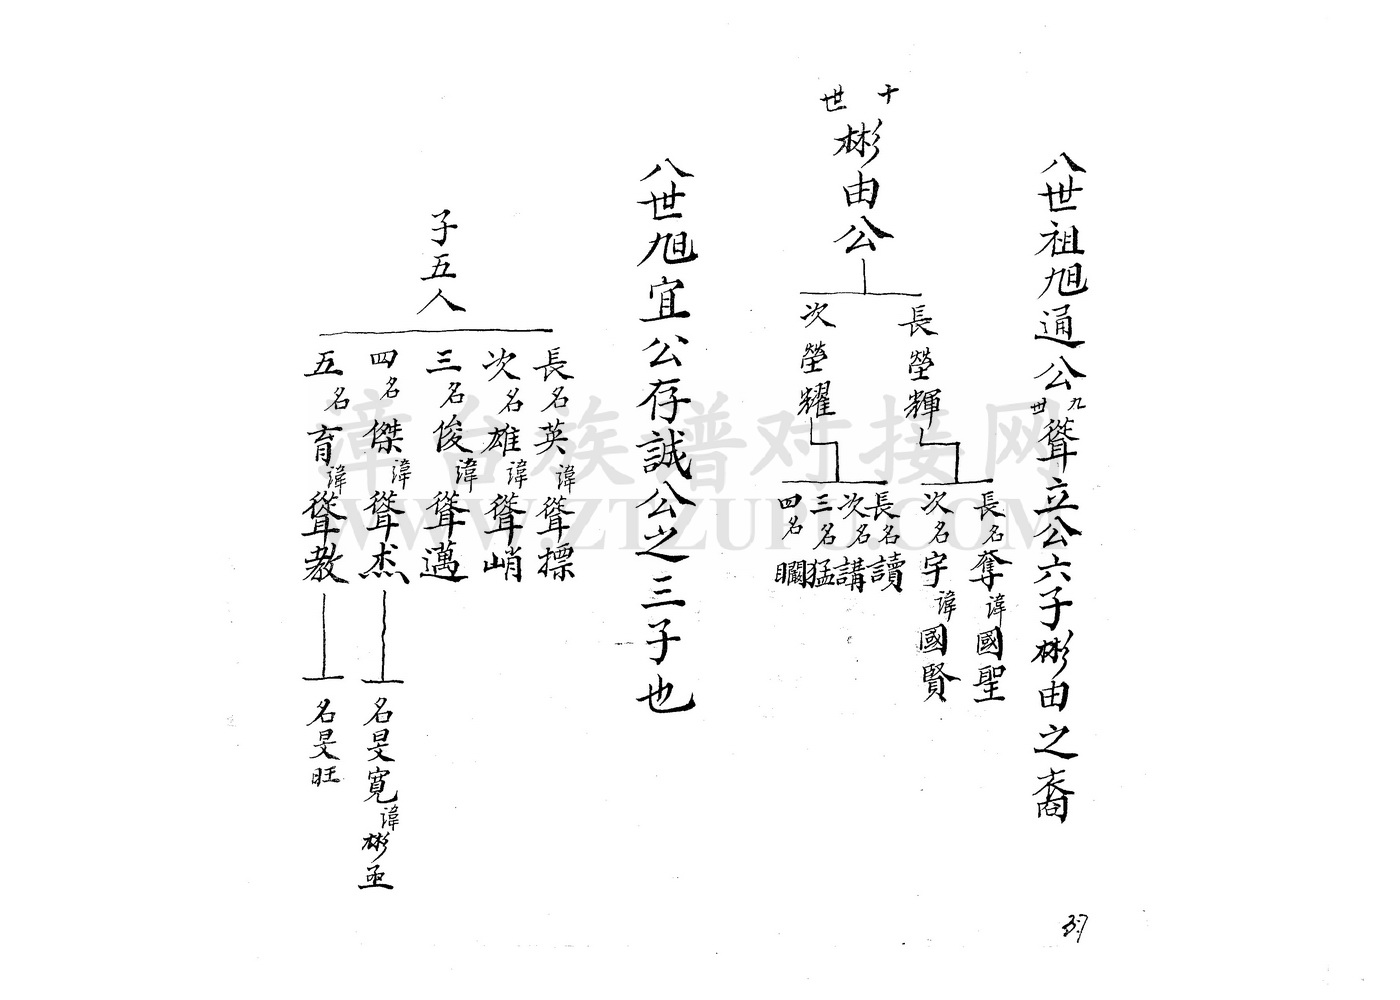 八世祖旭通公九世聳立公六子彬由之裔
十世
彬由公
長榮輝
次榮耀
長名奪諱國聖
次名宇諱國賢
長名讀
次名講
三名猛
四名矙
八世旭宜公存誠公之三子也
子五人
長名英諱聳標
次名雄諱聳峭
三名俊諱聳邁
四名傑諱聳杰
五名育諱聳教
名旻寬諱彬亟
名旻旺
37
漳台族谱对接网
WWW.ZTZUPU.COM